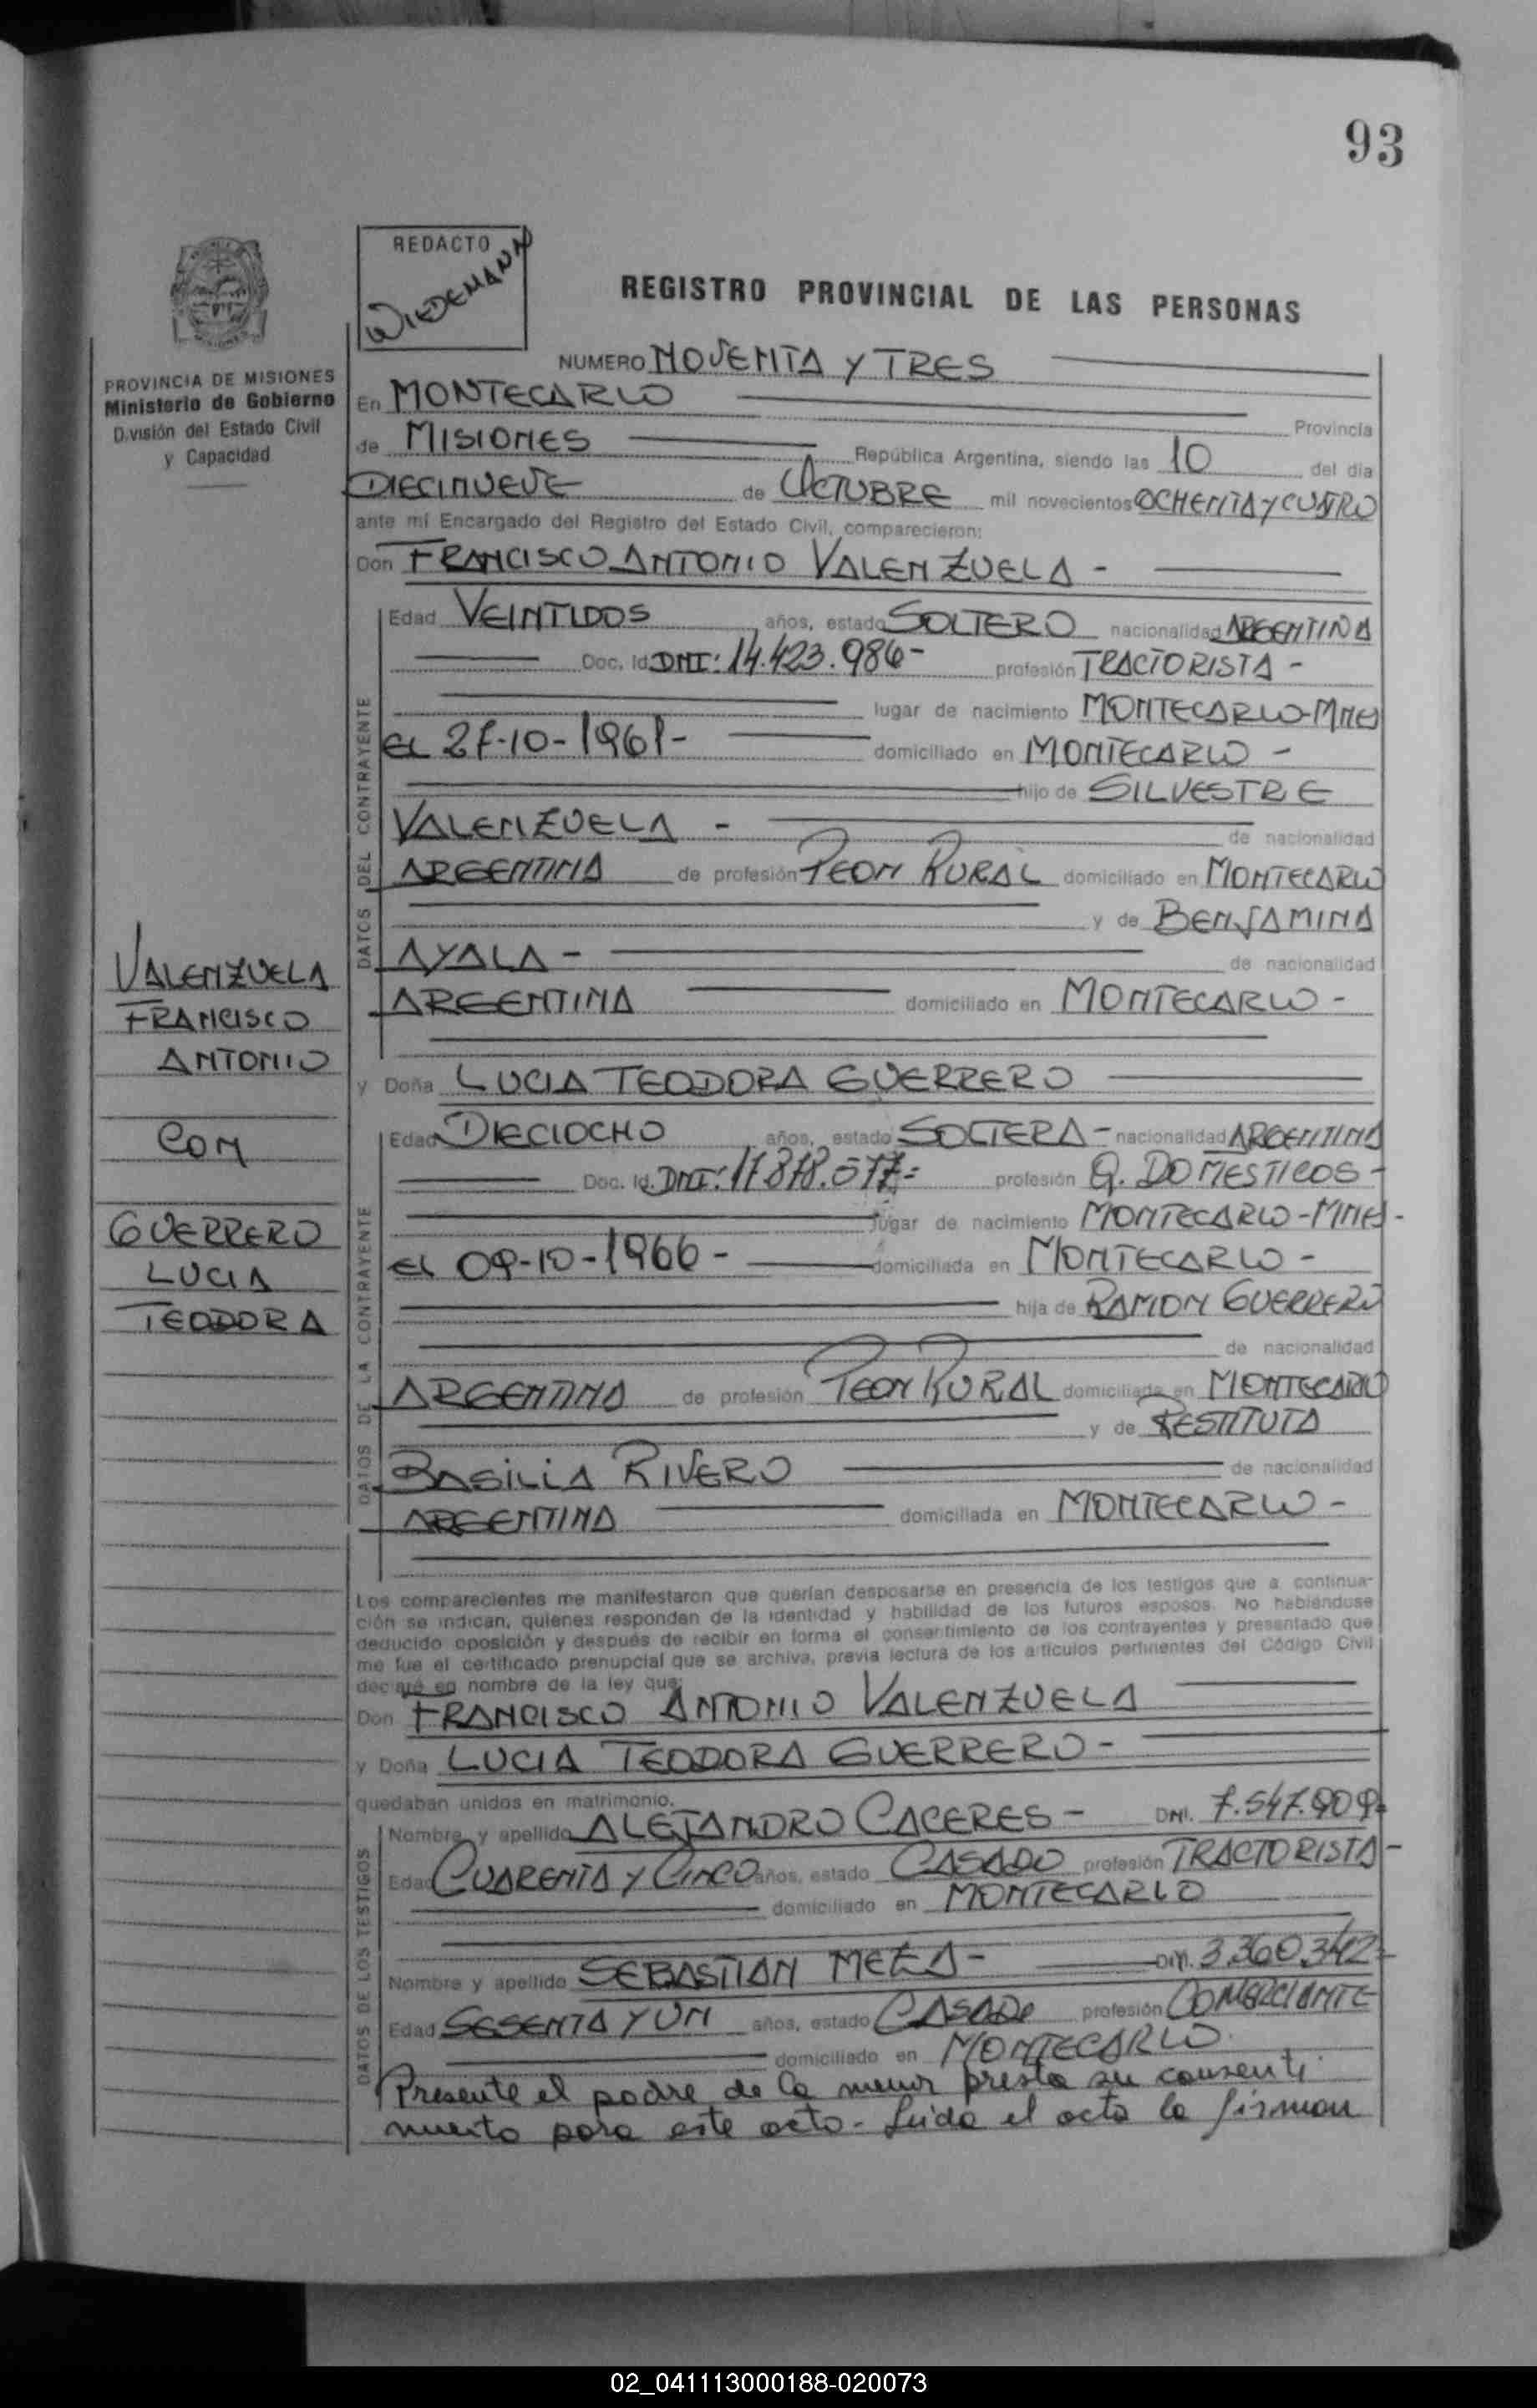 93
REDACTO
WIEDEMANN
REGISTRO PROVINCIAL DE LAS PERSONAS
PROVINCIA DE MISIONES
Ministerio de Gobierno
División del Estado Civil
y Capacidad
NUMERO NOVENTA Y TRES
En MONTECARLO
Provincia
de MISIONES República Argentina, siendo las 10 del día
DIECINUEVE de OCTUBRE mil novecientos OCHENTA Y CUATRO
ante mí Encargado del Registro del Estado Civil, comparecieron:
Don FRANCISCO ANTONIO VALENZUELA -
DATOS DEL CONTRAYENTE
Edad VEINTIDOS años, estado SOLTERO nacionalidad ARGENTINA
Doc. Id. DNI: 14.423.986- profesión TRACTORISTA -
lugar de nacimiento MONTECARLO-MNES
EL 27-10-1961- domiciliado en MONTECARLO -
hijo de SILVESTRE
VALENZUELA - de nacionalidad
ARGENTINA de profesión PEON RURAL domiciliado en MONTECARLO
y de BENJAMINA
AYALA - de nacionalidad
ARGENTINA domiciliado en MONTECARLO -
VALENZUELA
FRANCISCO
ANTONIO
CON
GUERRERO
LUCIA
TEODORA
y Doña LUCIA TEODORA GUERRERO
DATOS DE LA CONTRAYENTE
Edad DIECIOCHO años, estado SOLTERA - nacionalidad ARGENTINA
Doc. Id. DNI: 17.878.577- profesión Q. DOMESTICOS -
lugar de nacimiento MONTECARLO-MNES-
EL 09-10-1966 - domiciliada en MONTECARLO -
hija de RAMON GUERRERO
de nacionalidad
ARGENTINA de profesión PEON RURAL domiciliada en MONTECARLO
y de RESTITUTA
BASILIA RIVERO de nacionalidad
ARGENTINA domiciliada en MONTECARLO -
Los comparecientes me manifestaron que querían desposarse en presencia de los testigos que a continua-
ción se indican, quienes responden de la identidad y habilidad de los futuros esposos. No habiéndose
deducido oposición y después de recibir en forma el consentimiento de los contrayentes y presentado que
me fue el certificado prenupcial que se archiva, previa lectura de los artículos pertinentes del Código Civil
declaré en nombre de la ley que:
Don FRANCISCO ANTONIO VALENZUELA
y Doña LUCIA TEODORA GUERRERO -
quedaban unidos en matrimonio.
DATOS DE LOS TESTIGOS
Nombre y apellido ALEJANDRO CACERES - DNI. 7.547.909-
Edad CUARENTA Y CINCO años, estado CASADO profesión TRACTORISTA -
domiciliado en MONTECARLO
Nombre y apellido SEBASTIAN MEZA - DNI. 3.360.342-
Edad SESENTA Y UN años, estado CASADO profesión COMERCIANTE
domiciliado en MONTECARLO.
Presente el padre de la menor presta su consenti
miento para este acto - Leida el acta la firman
02_041113000188-020073